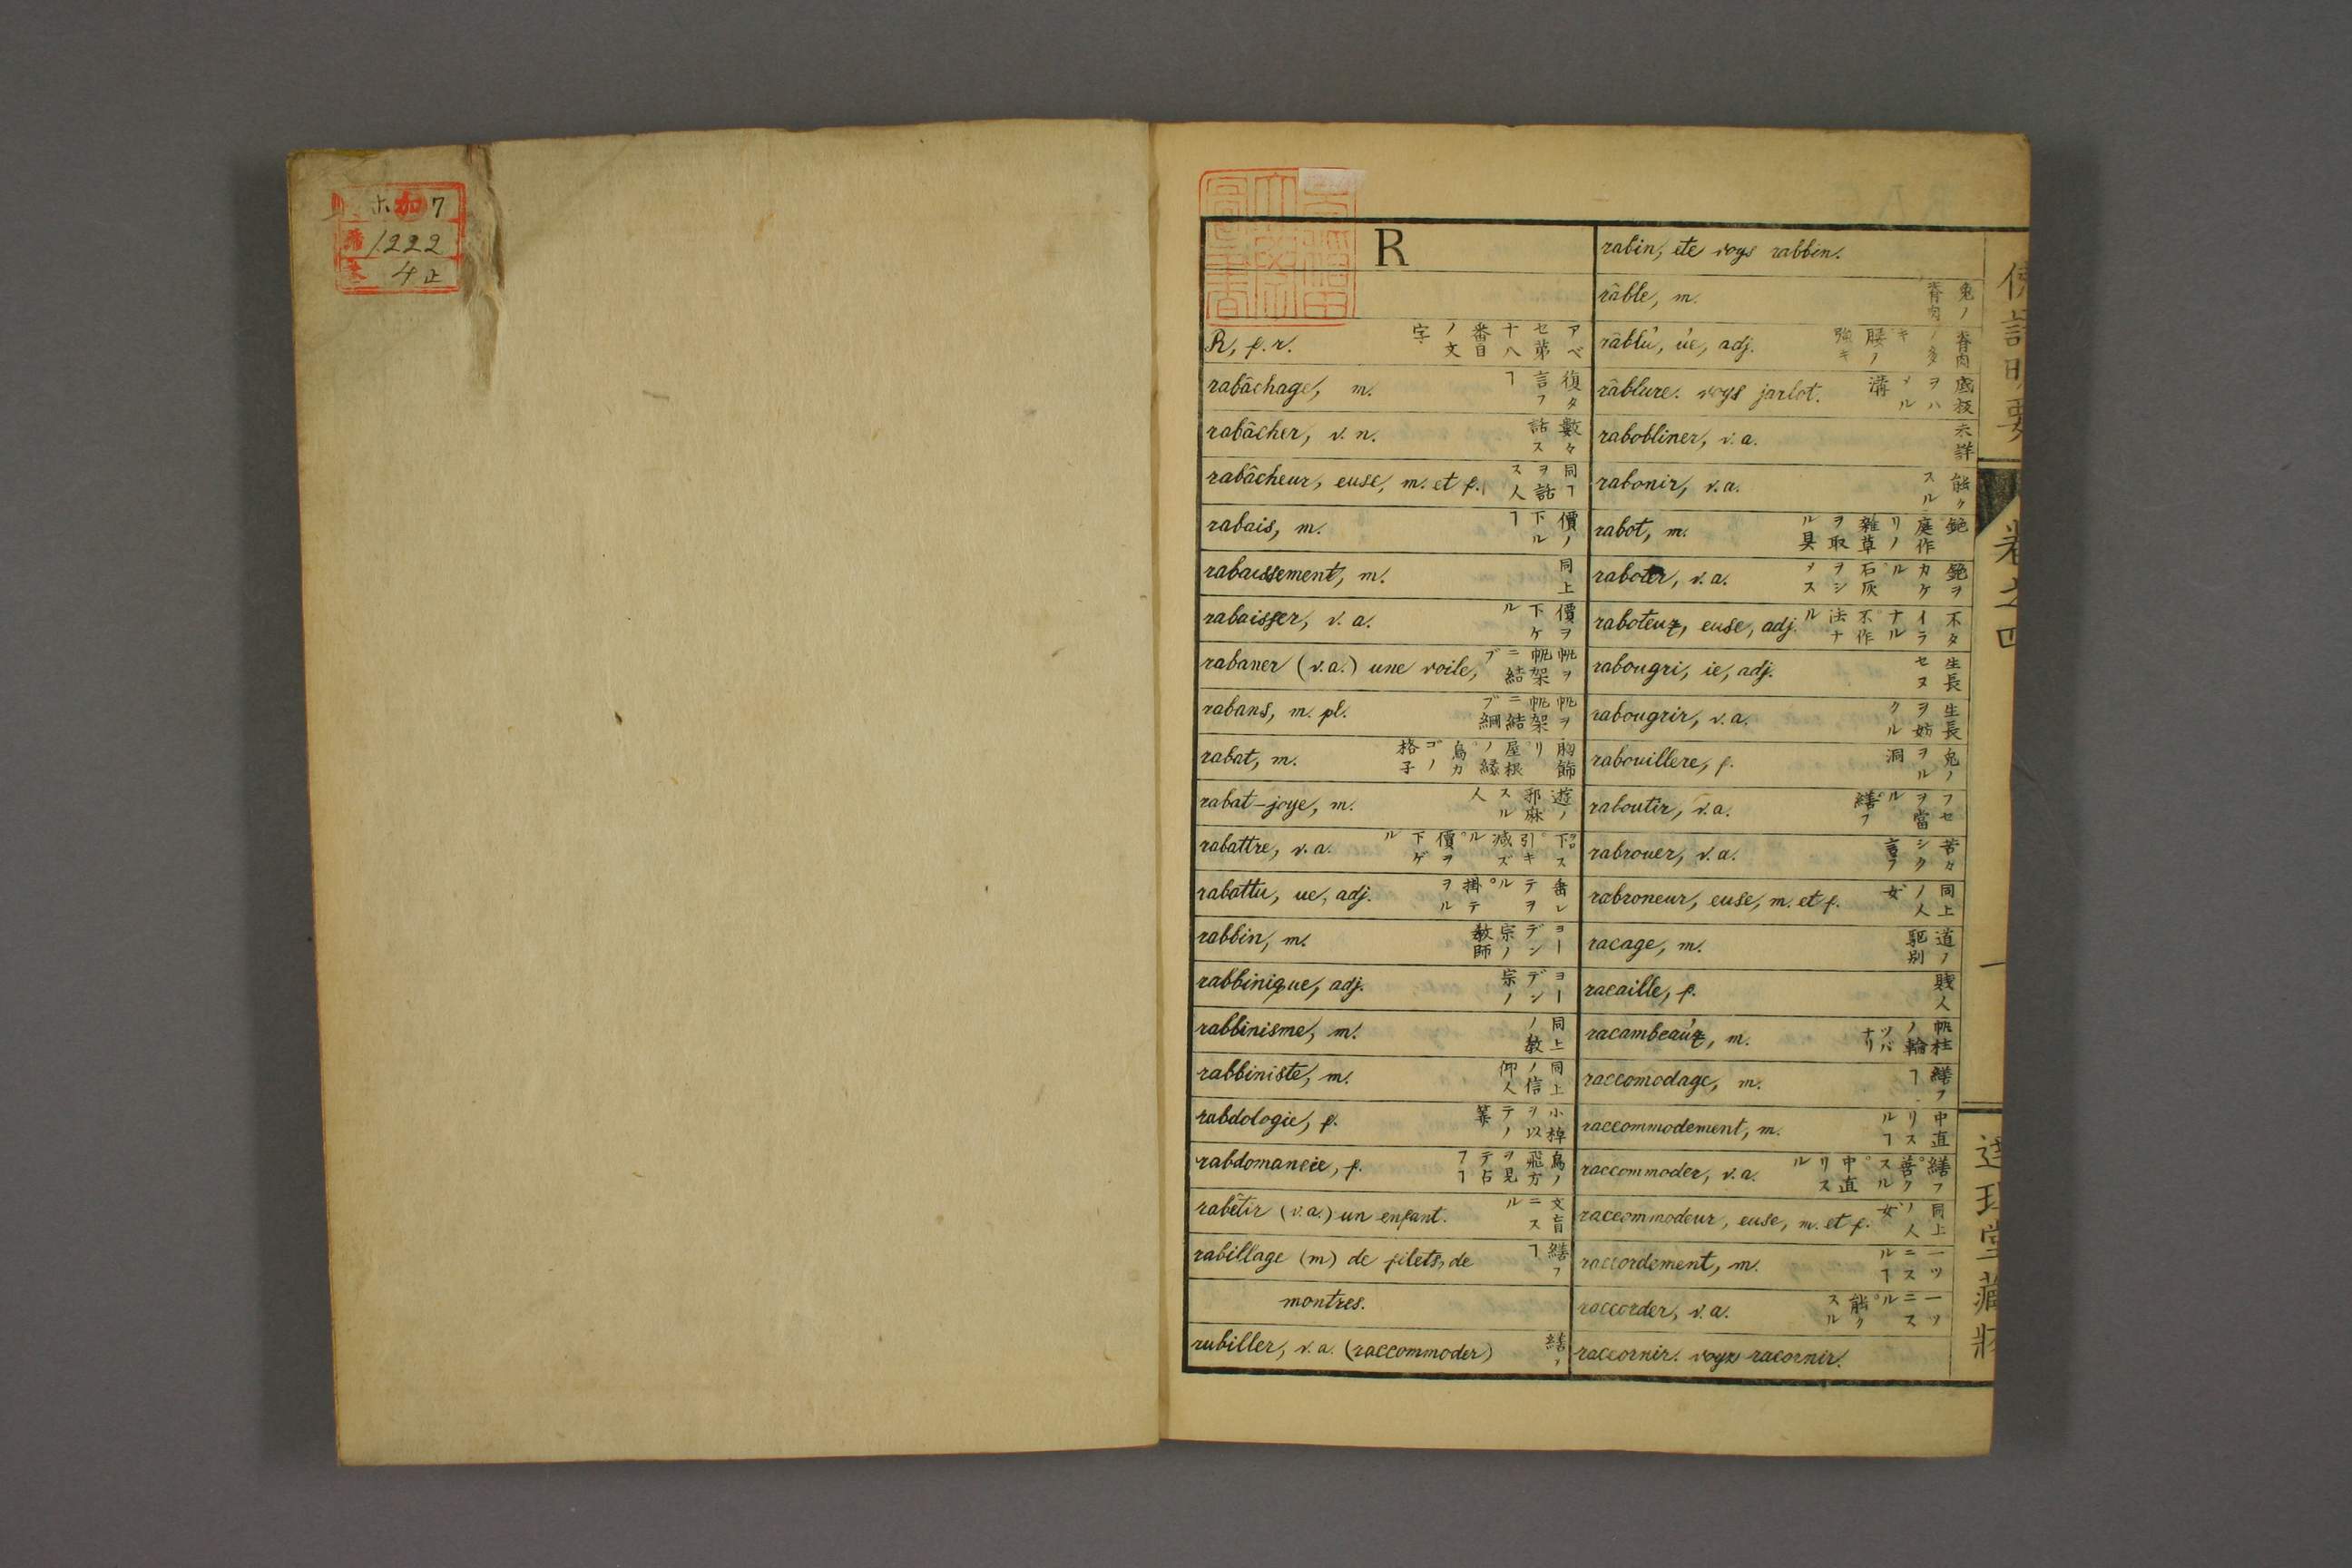 ホ 加 7
番 1222
4 止
R
R, f. r. アベセ第十八番目ノ文字
rabâchage, m. 復タ言フヿ
rabâcher, v. n. 數々話ス
rabâcheur, euse, m. et f. 同ヿヲ話ス人
rabais, m. 價ノ下ルヿ
rabaissement, m. 同上
rabaisser, v. a. 價ヲ下ケル
rabaner (v.a.) une voile, 帆ヲ帆架ニ結ブ
rabans, m. pl. 帆ヲ帆架ニ結ブ綱
rabat, m. 胸飾リ°屋根ノ縁°鳥カゴノ格子
rabat-joye, m. 遊ノ邪麻スル人
rabattre, v. a. 下ス°引キ減ズル°價ヲ下ゲル
rabattu, ue, adj. 垂レテヲル°掛テヲル
rabbin, m. ヨーデン宗ノ教師
rabbinique, adj. ヨーデン宗ノ
rabbinisme, m. 同上ノ教
rabbiniste, m. 同上ノ信仰人
rabdologie, f. 小棹ヲ以テノ算
rabdomancie, f. 鳥ノ飛方ヲ見テ占フヿ
rabêtir (v.a.) un enfant. 文盲ニスル
rabillage (m) de filets, de 繕フヿ
montres.
rubiller, v. a. (raccommoder) 繕フ
rabin, ete voys rabbin.
râble, m. 兔ノ脊肉
râblu, ue, adj. 脊肉ノ多キ°腰ノ強キ
râblure. voys jarlot. 底板ヲハメル溝
rabobliner, v. a. 未詳
rabonir, v. a. 能クスル
rabot, m. 鉋°庭作リノ雜草ヲ取ル具
raboter, v. a. 鉋ヲカケル°石灰ヲシメス
raboteuz, euse, adj. 不タイラナル°不作法ナル
rabougri, ie, adj. 生長セヌ
rabougrir, v. a. 生長ヲ妨クル
rabouillere, f. 兔ノヲル洞
raboutir, v. a. フセヲ當ル°繕フ
rabrouer, v. a. 苦々シク言フ
rabroneur, euse, m. et f. 同上ノ人°女
racage, m. 道ノ駈別
racaille, f. 賤人
racambeaúz, m. 帆柱ノ輪ツバナリ
raccomodage, m. 繕フヿ
raccommodement, m. 中直リスルヿ
raccommoder, v. a. 繕フ°善クスル°中直リスル
raccommodeur, euse, m. et f. 同上ノ人°女
raccordement, m. 一ツニスルヿ
raccorder, v. a. 一ツニスル°能クスル
raccornir. voyz racornir.
卷之四
一
達理堂藏